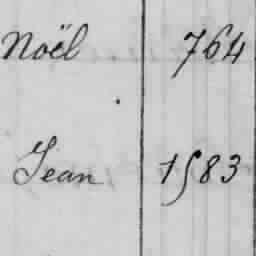 Noël 764
Jean 1583